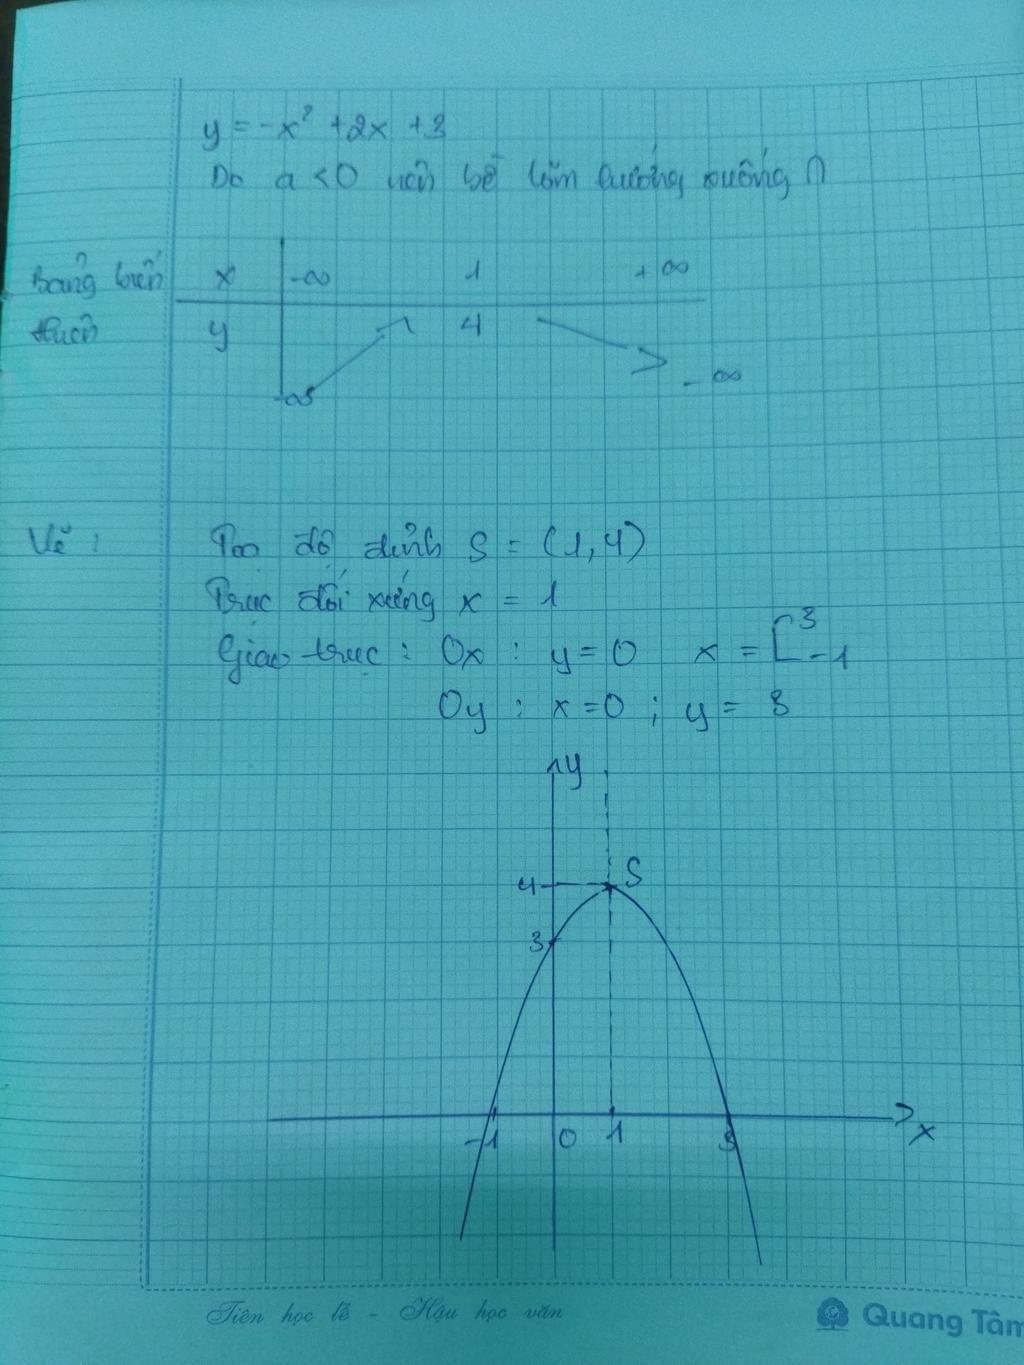 y = -x² + 2x + 3
Do a < 0 nên bề lõm hướng xuống ∩
Bảng biến thiên
x -∞ 1 +∞
y 4
-∞ -∞
Vẽ :
Toạ độ đỉnh S = (1, 4)
Trục đối xứng x = 1
Giao trục : Ox : y = 0 x = [ 3 -1
Oy : x = 0 ; y = 3
y
4 S
3
-1 0 1 3 x
Tiên học lễ - Hậu học văn
Quang Tâm